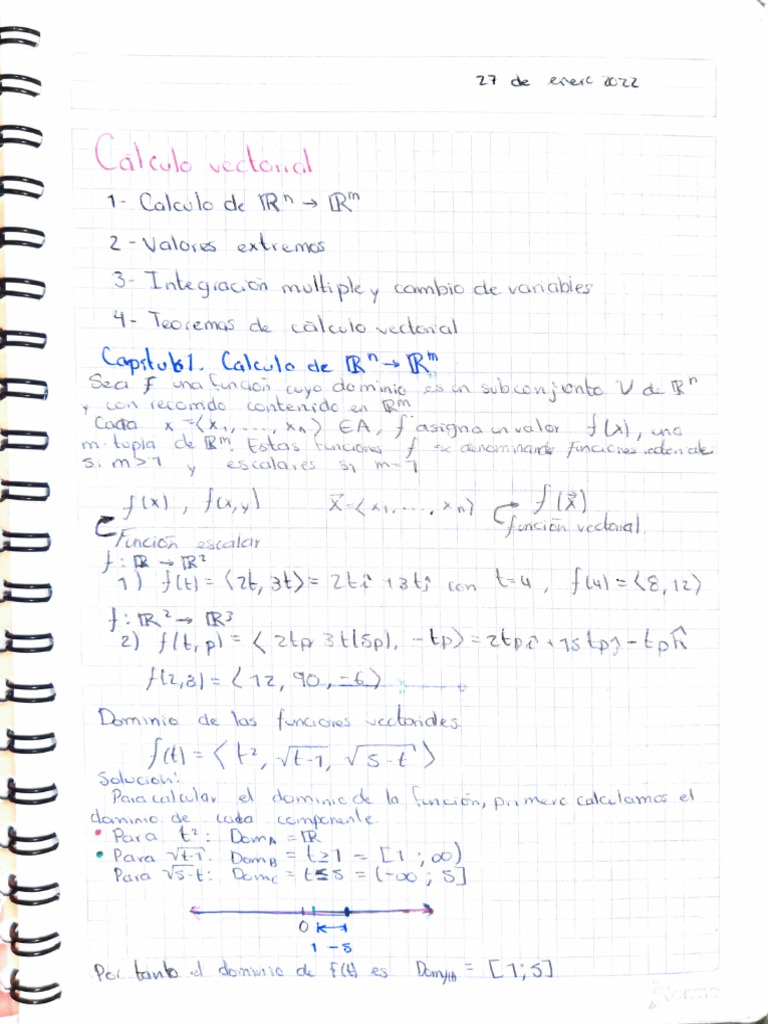 27 de enero 2022
Calculo vectorial
1- Calculo de ℝⁿ → ℝᵐ
2- Valores extremos
3- Integración multiple y cambio de variables
4- Teoremas de cálculo vectorial
Capítulo 1. Calculo de ℝⁿ → ℝᵐ
Sea f una función cuyo dominio es un subconjunto U de ℝⁿ
y con recorrido contenido en ℝᵐ
Cada x = ⟨x₁, ..., xₙ⟩ ∈ A, f asigna un valor f(x), una
m-tupla de ℝᵐ. Estas funciones f se denominando funciones
si m>1 y escalares si m=1
f(x), f(x,y) x⃗ = ⟨x₁, ..., xₙ⟩ f(x⃗)
función vectorial.
Función escalar
f: ℝ → ℝ²
1) f(t) = ⟨2t, 3t⟩ = 2tî + 3tĵ con t=4, f(4) = ⟨8, 12⟩
f: ℝ² → ℝ³
2) f(t,p) = ⟨2tp, 3t(5p), -tp⟩ = 2tpî + 15tpĵ - tpk̂
f(2,3) = ⟨12, 90, -6⟩
Dominio de las funciones vectoriales
f(t) = ⟨t², √t-1, √5-t⟩
Solución:
Para calcular el dominio de la función, primero calculamos el
dominio de cada componente.
• Para t²: Dom_A = ℝ
• Para √t-1: Dom_B = t≥1 = [1; ∞)
Para √5-t: Dom_C = t≤5 = (-∞; 5]
0
1 - 5
Por tanto el dominio de f(t) es Dom = [1; 5]
Norma